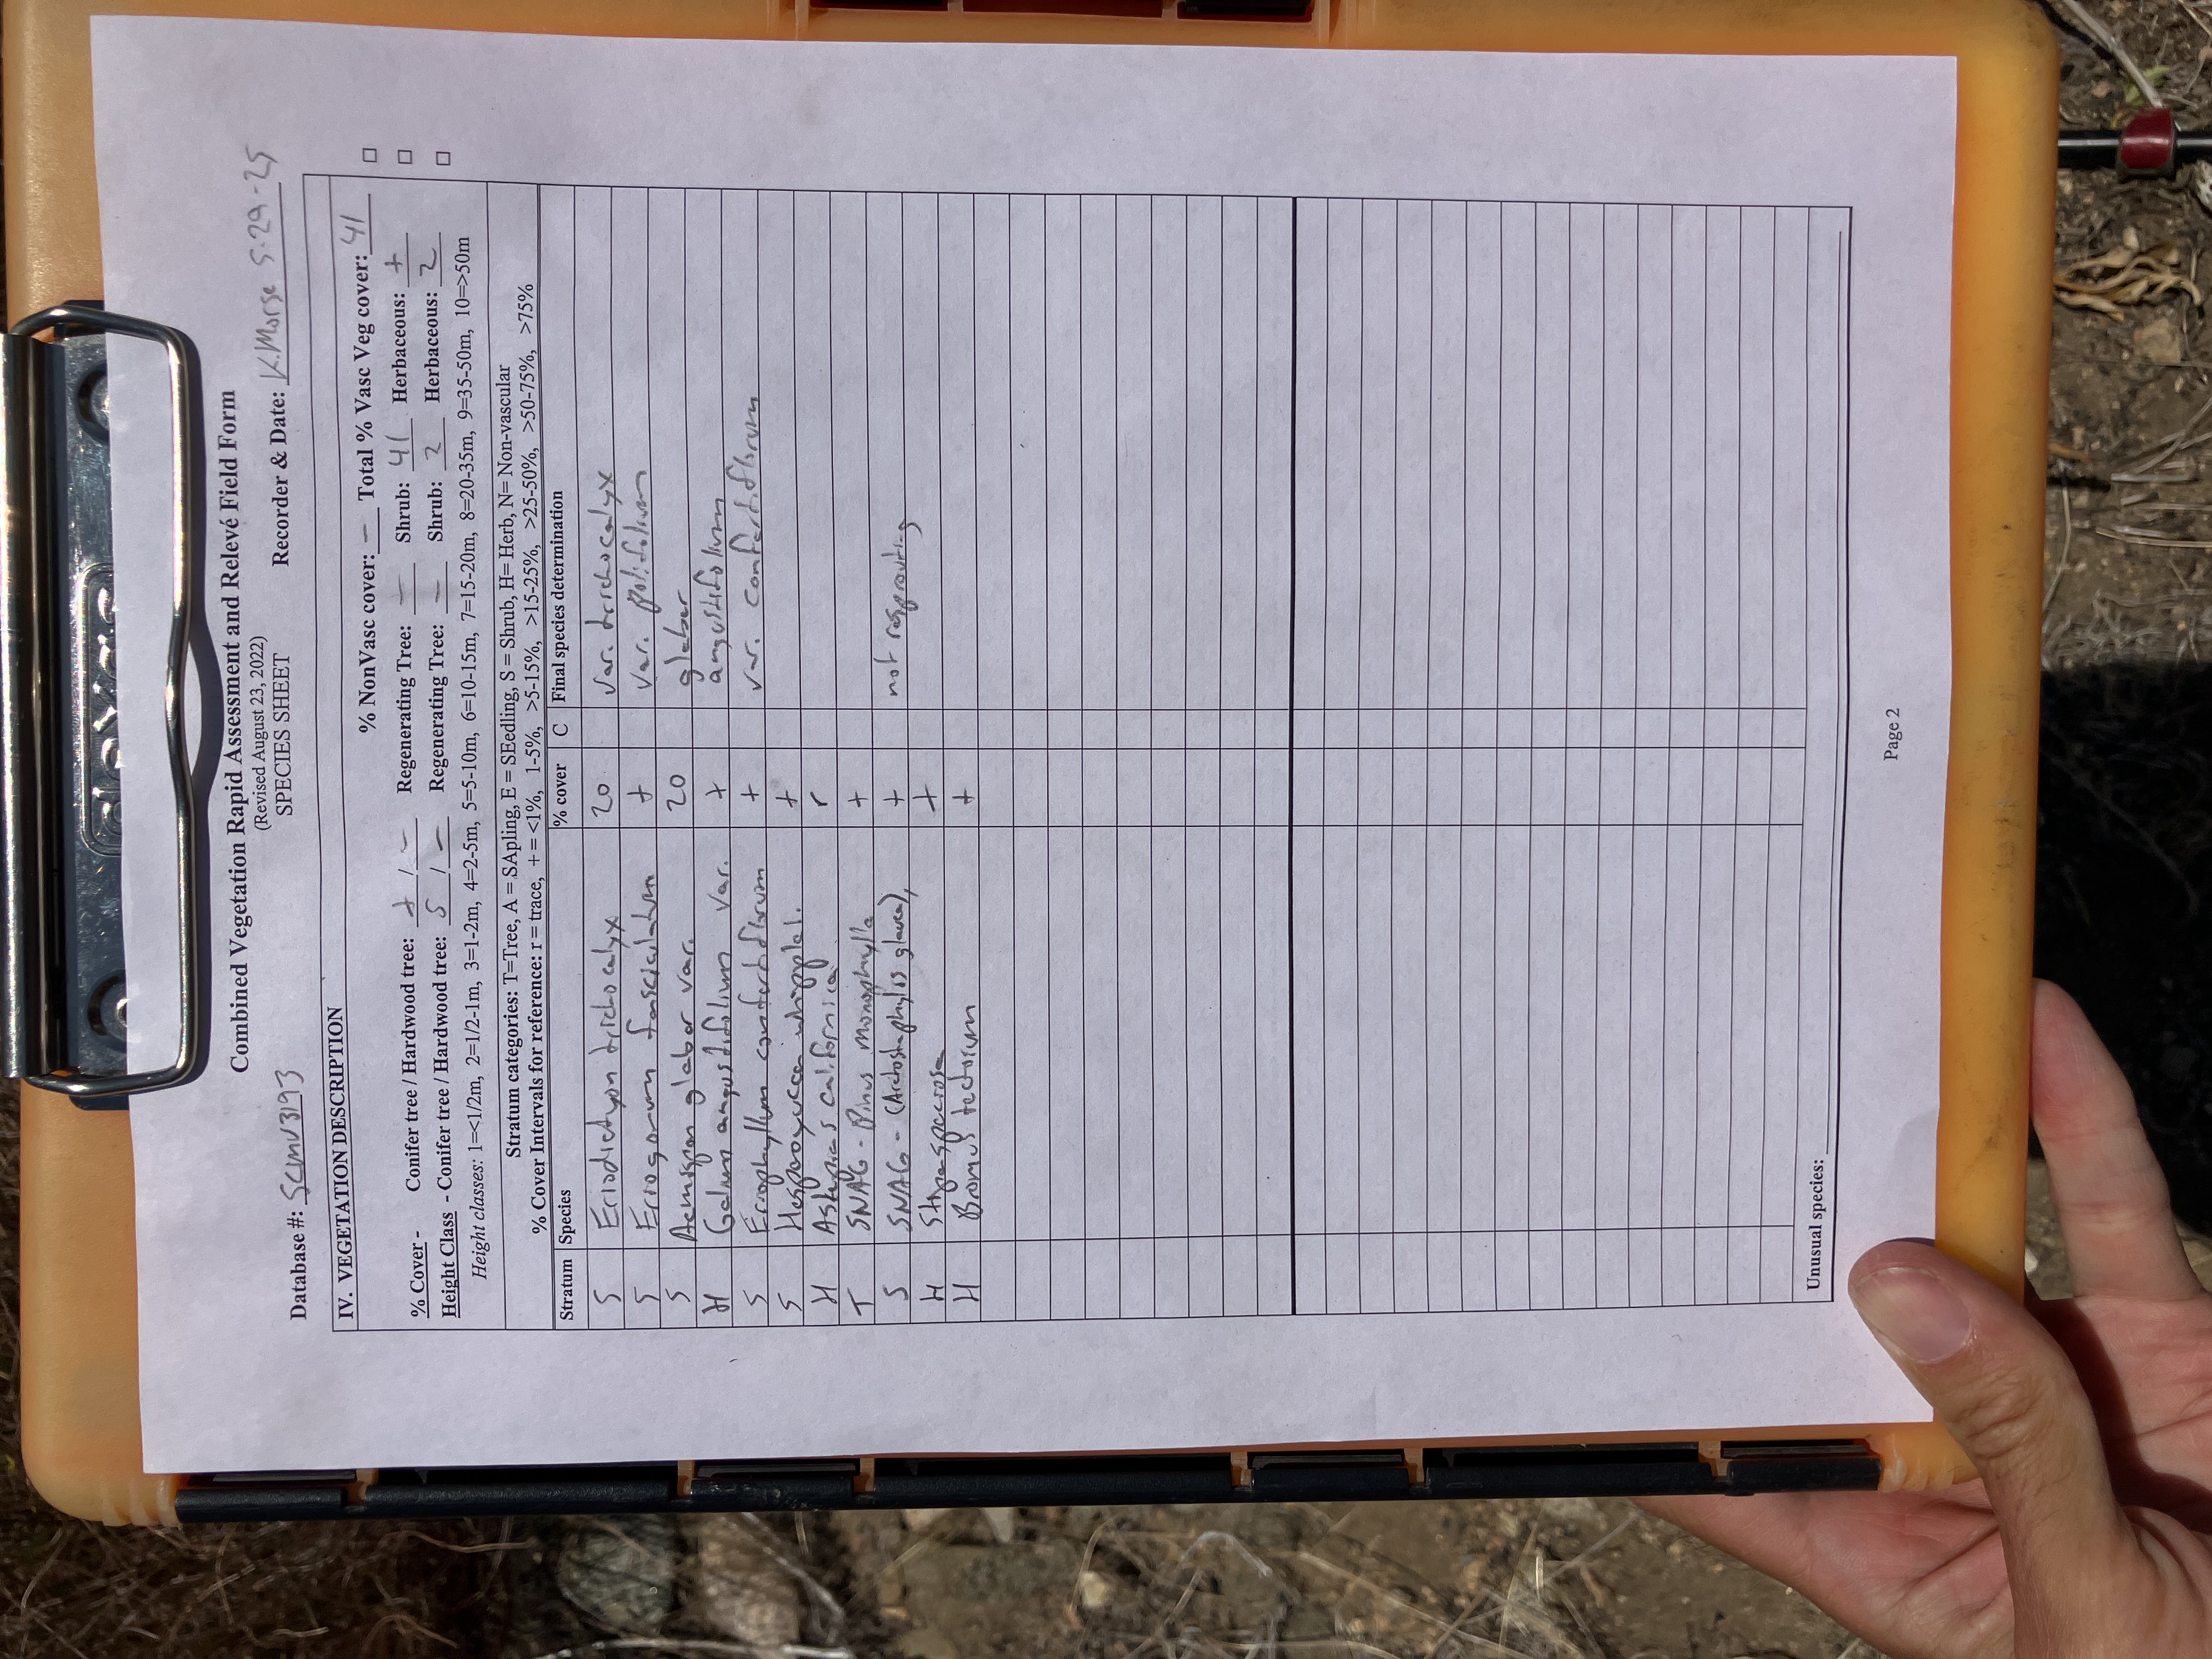 Combined Vegetation Rapid Assessment and Relevé Field Form
(Revised August 23, 2022)
SPECIES SHEET
Database #: SCMV3193 Recorder & Date: K.Morse 5-29-25
IV. VEGETATION DESCRIPTION
% NonVasc cover: — Total % Vasc Veg cover: 41 □
% Cover - Conifer tree / Hardwood tree: + / - Regenerating Tree: — Shrub: 41 Herbaceous: + □
Height Class - Conifer tree / Hardwood tree: 5 / - Regenerating Tree: — Shrub: 2 Herbaceous: 2 □
Height classes: 1=<1/2m, 2=1/2-1m, 3=1-2m, 4=2-5m, 5=5-10m, 6=10-15m, 7=15-20m, 8=20-35m, 9=35-50m, 10=>50m
Stratum categories: T=Tree, A = SApling, E = SEedling, S = Shrub, H= Herb, N= Non-vascular
% Cover Intervals for reference: r = trace, + = <1%, 1-5%, >5-15%, >15-25%, >25-50%, >50-75%, >75%
Stratum Species % cover C Final species determination
S Eriodictyon trichocalyx 20 var. trichocalyx
S Eriogonum fasciculatum + var. polifolium
S Acmispon glaber var. 20 glaber
H Galium angustifolium var. + angustifolium
S Eriophyllum confertiflorum + var. confertiflorum
S Hesperoyucca whipplei. +
H Asclepias californica r
T SNAG - Pinus monophylla +
S SNAG - (Arctostaphylos glauca), + not resprouting
H Stipa speciosa +
H Bromus tectorum +
Unusual species:
Page 2